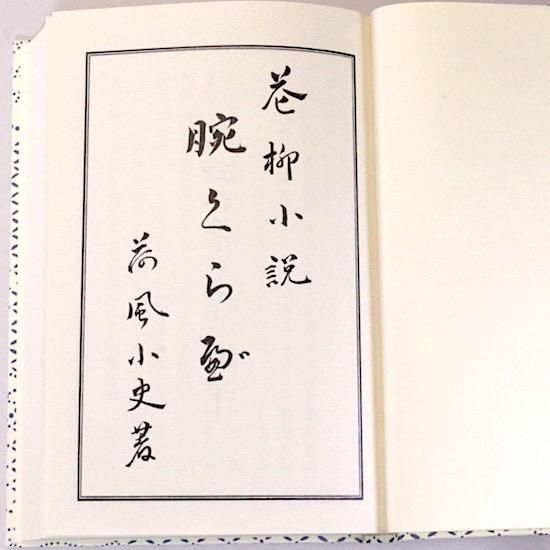 花柳小説
腕くらべ
荷風小史著